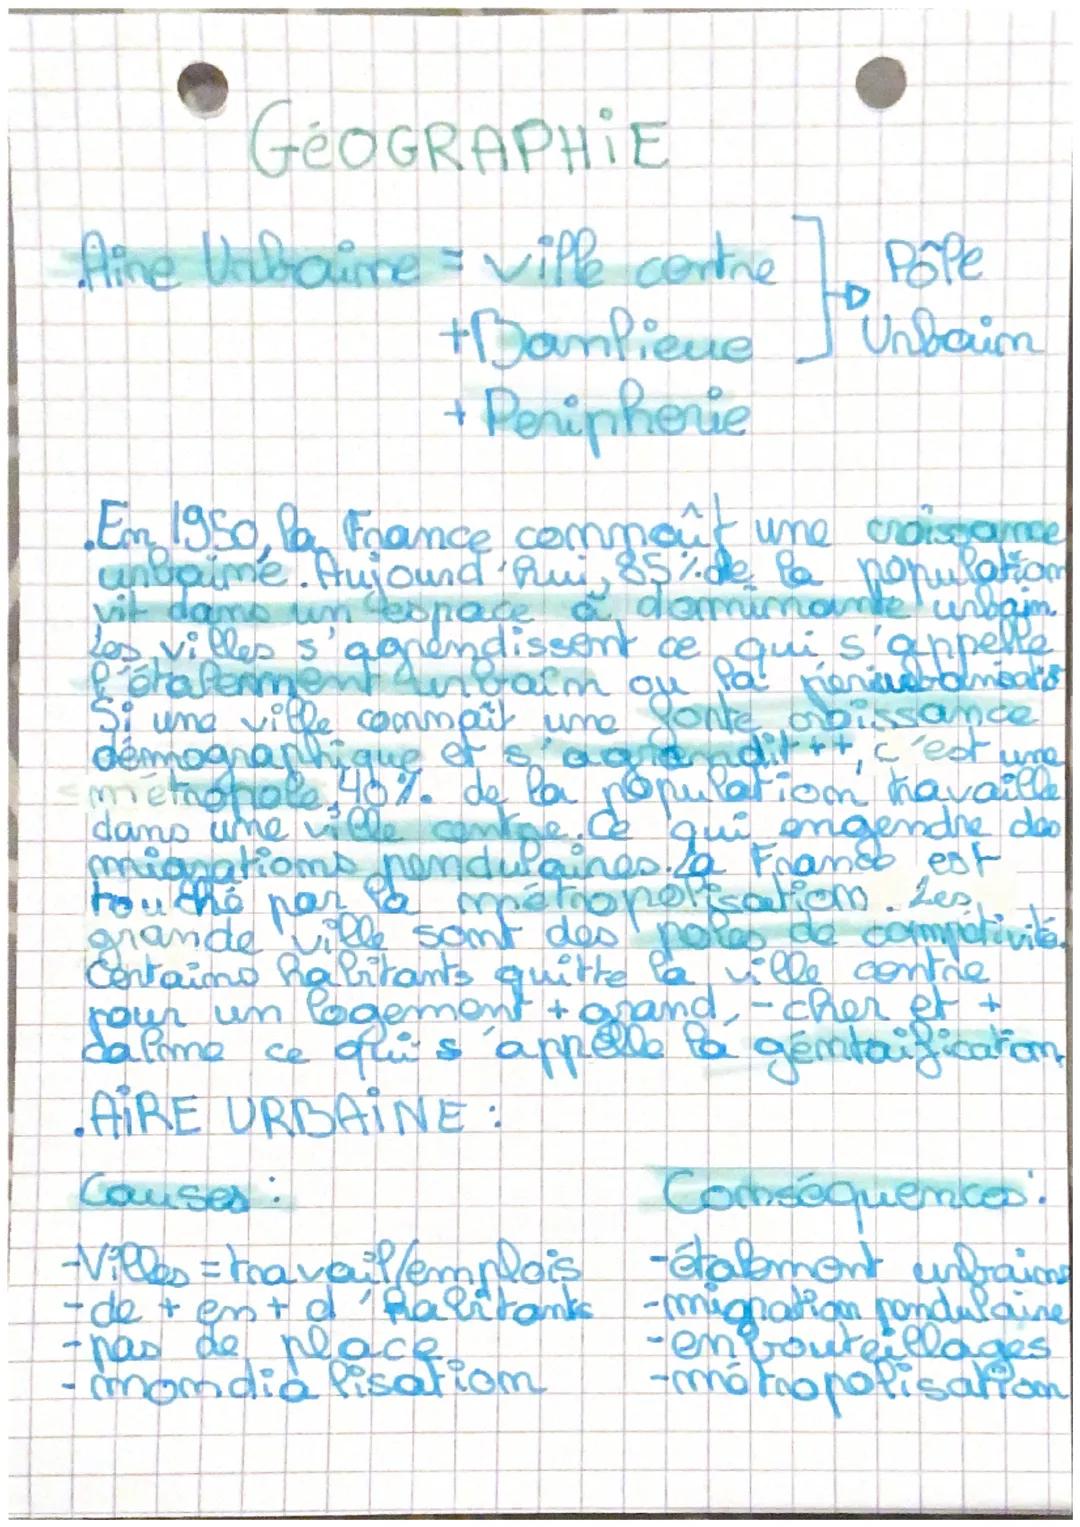 GéOGRAPHiE
.Aire Urbaine = ville centre
+ Banlieue
+ Peripherie
Pôle
Urbain
.En 1950, la France connaît une croissance
urbaine. Aujourd'hui, 85 % de la population
vit dans un espace à dominante urbain
Les villes s'agrendissent ce qui s'appelle
l'étalenment urbain ou la
Si une ville connaît une forte croissance
démographique et s'agrandit ++, c'est une
métropole, 40% de la population travaille
dans une ville centre. Ce qui engendre des
migrations pendulaires. La France est
touché par la métropolisation. Les
grande ville sont des poles de compétivité.
Certains habitants quitte la ville centre
pour un logement + grand, - cher et +
calme ce qui s'appelle la
.AiRE URBAiNE :
Causes :
-Villes = travail/emplois
- de + en + d'habitants
- pas de place
- mondialisation
Conséquences :
-étalement urbains
-migration pendulaire
-embouteillages
-métropolisation